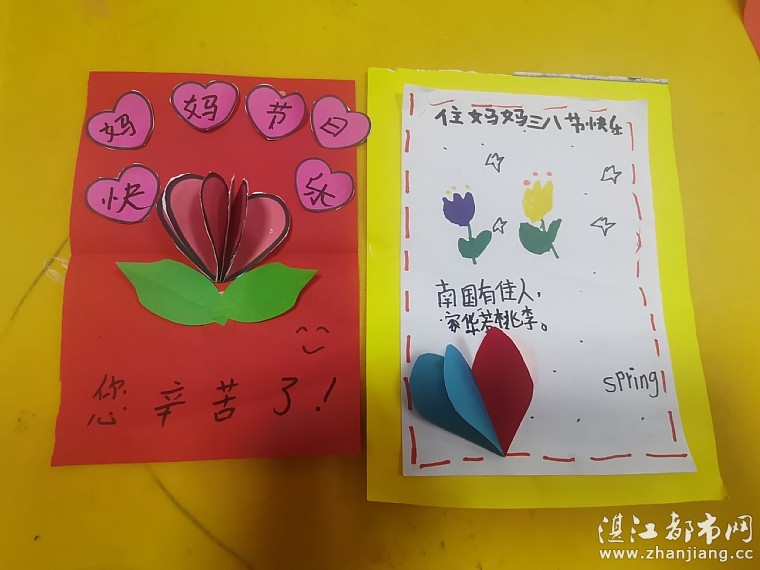 妈妈节日
快乐
您辛苦了！
住妈妈三八节快乐
南国有佳人，
家华若桃李。
spring
湛江都市网
www.zhanjiang.cc